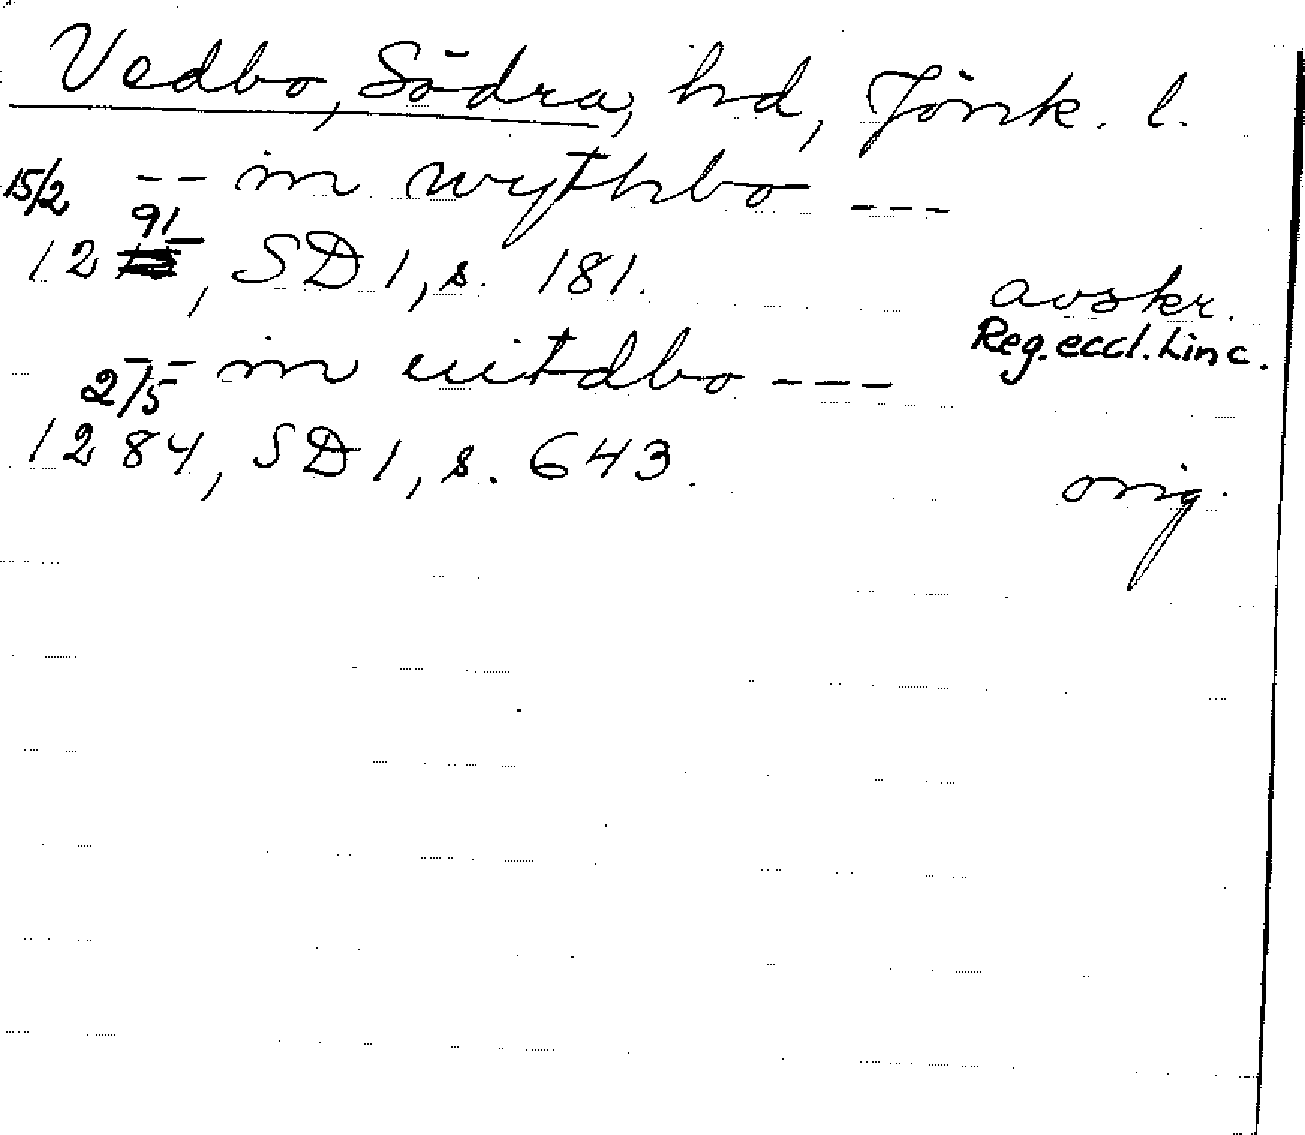 Vedbo, Södra, hd, Jönk. l.
15/2 -- in wythbo ---
1291, SD 1, s. 181.
avskr.
Reg. eccl. Linc.
-- in uitdbo ---
2/5
1284, SD 1, s. 643.
orig.